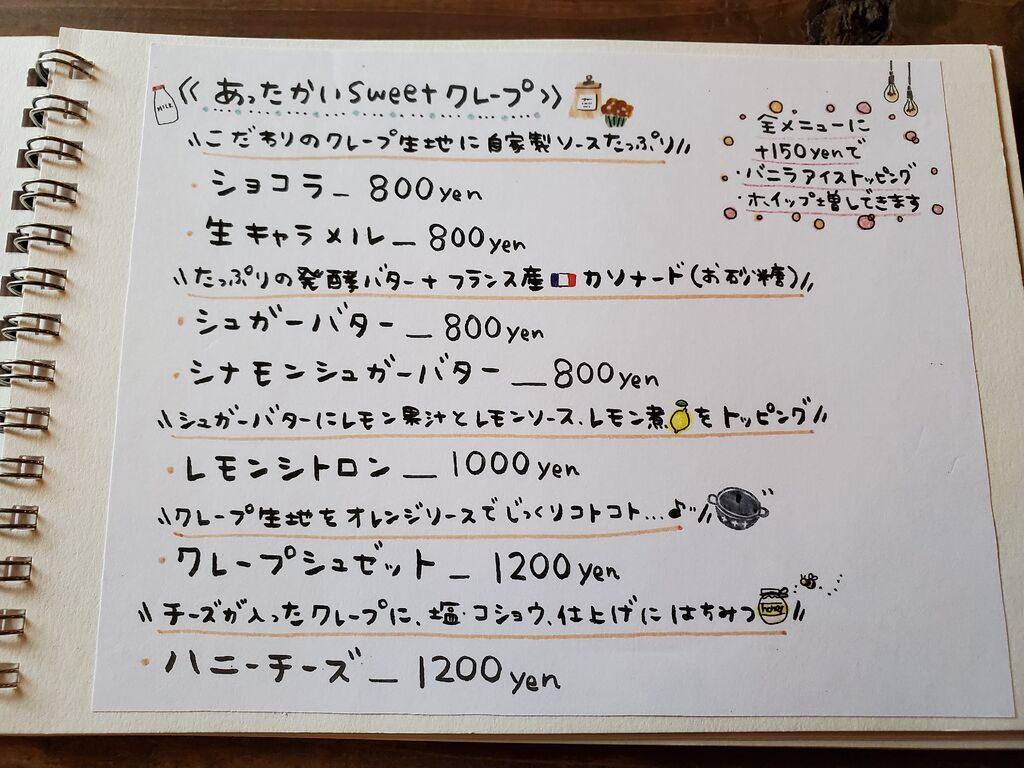 MILK
《あったかいsweetクレープ》
\\こだわりのクレープ生地に自家製ソースたっぷり//
・ショコラ_800yen
・生キャラメル_800yen
\\たっぷりの発酵バター+フランス産🇫🇷カソナード(お砂糖)//
・シュガーバター_800yen
・シナモンシュガーバター_800yen
\\シュガーバターにレモン果汁とレモンソース、レモン煮🍋をトッピング//
・レモンシトロン_1000yen
\\クレープ生地をオレンジソースでじっくりコトコト...♪//
・クレープシュゼット_1200yen
\\チーズが入ったクレープに、塩・コショウ、仕上げにはちみつ//
honey
・ハニーチーズ_1200yen
全メニューに
+150yenで
・バニラアイストッピング
・ホイップ増しできます